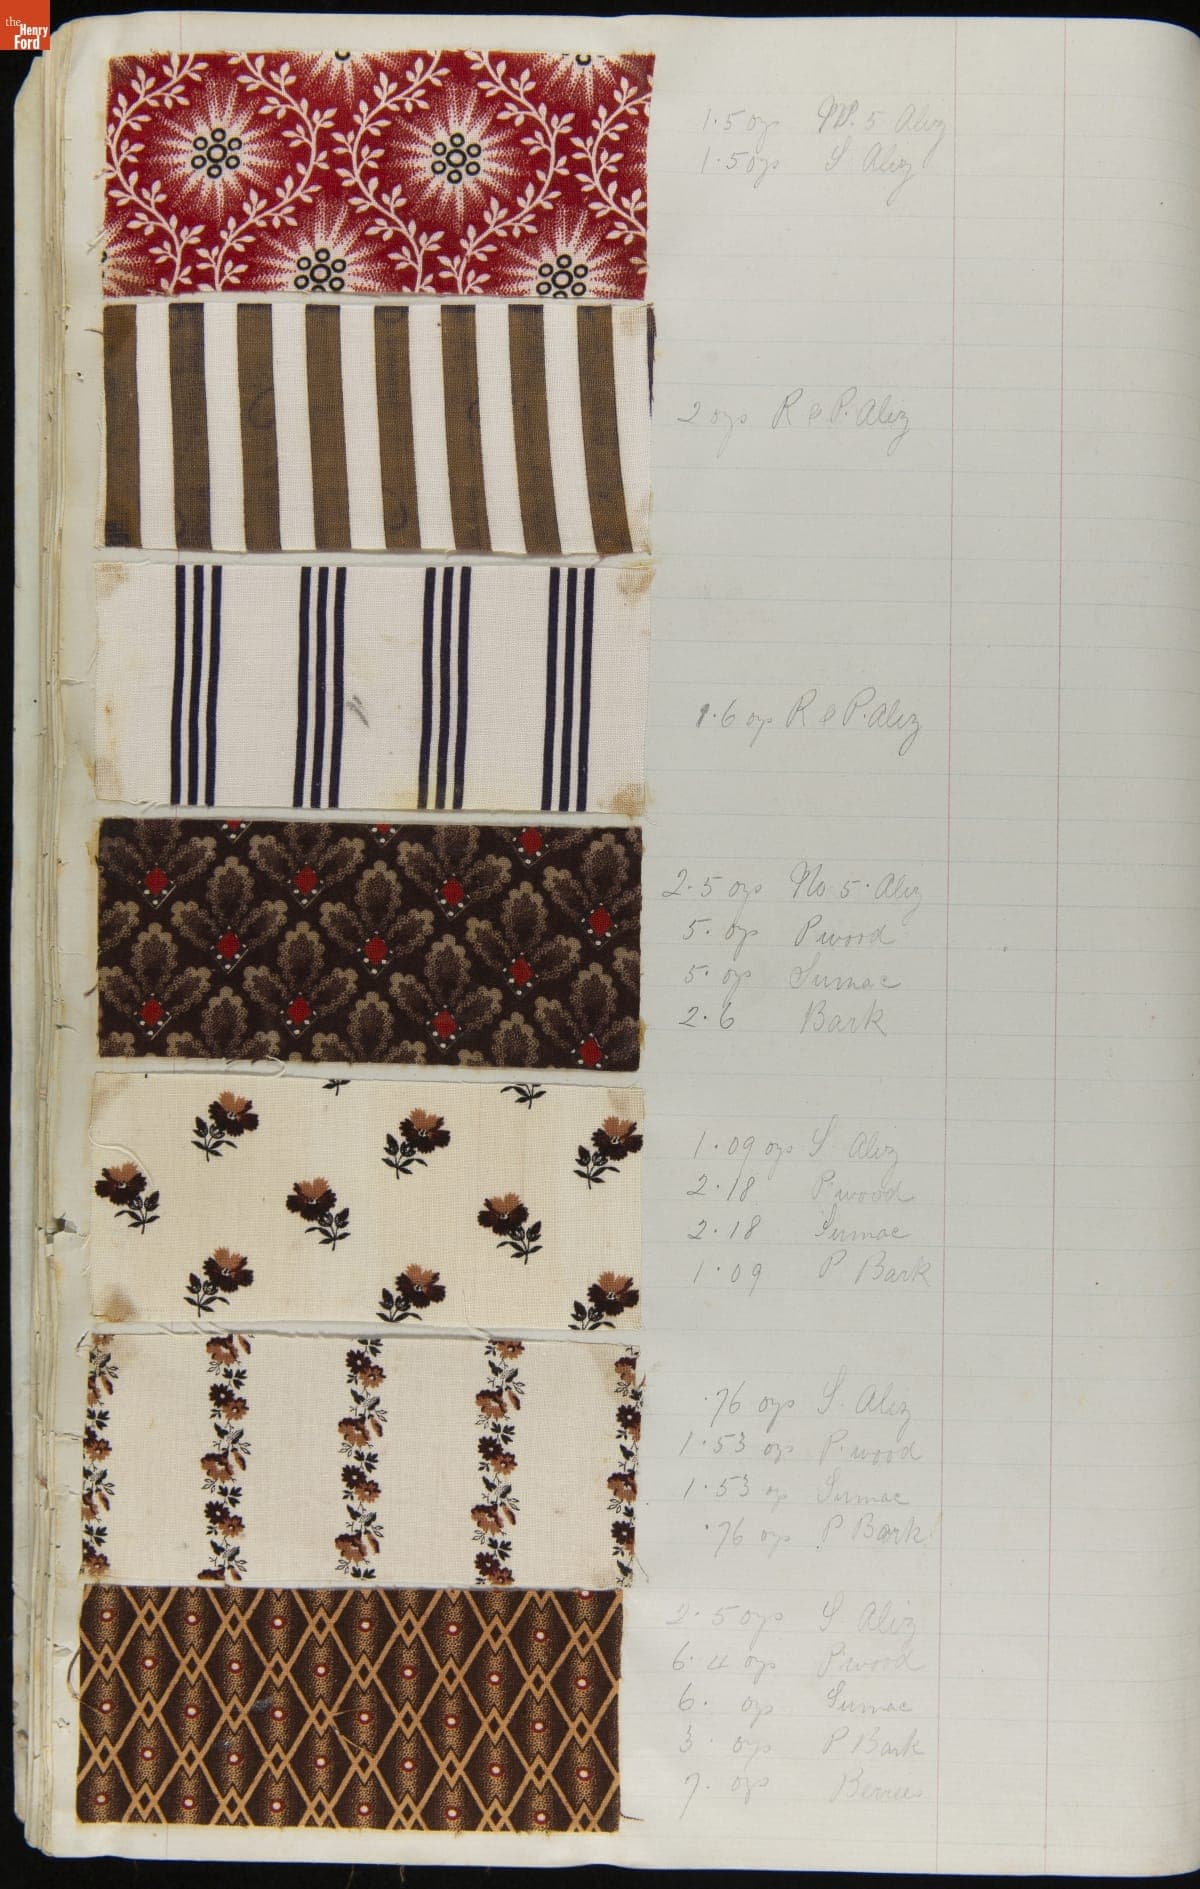 the
Henry
Ford
1.5 ozs No. 5 Aliz
1.5 ozs S Aliz
2 ozs R & P. Aliz
1.6 ozs R & P. Aliz
2.5 ozs No 5. Aliz
5. ozs Pwood
5. ozs Sumac
2.6 Bark
1.09 ozs S Aliz
2.18 P.wood
2.18 Sumac
1.09 P Bark
.76 ozs S. Aliz
1.53 ozs P.wood
1.53 ozs Sumac
.76 ozs P Bark
2.5 ozs S Aliz
6.4 ozs Pwood
6. ozs Sumac
3. ozs P Bark
7. ozs Berries